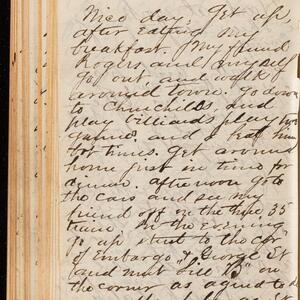 Nice day; Get up,
after Eating my
breakfast. My friend
Rogers and myself
go out, and walk
around town. Go down
to Churchills, and
play billiards, play two
games. and a
for times. Get around
home just in time for
dinner. Afternoon go to
the cars and see my
friend off on the 35
train. In the evening
go up street to the cor"
of Embargo" & George St
and met Lill B" on
the corner as agreed to